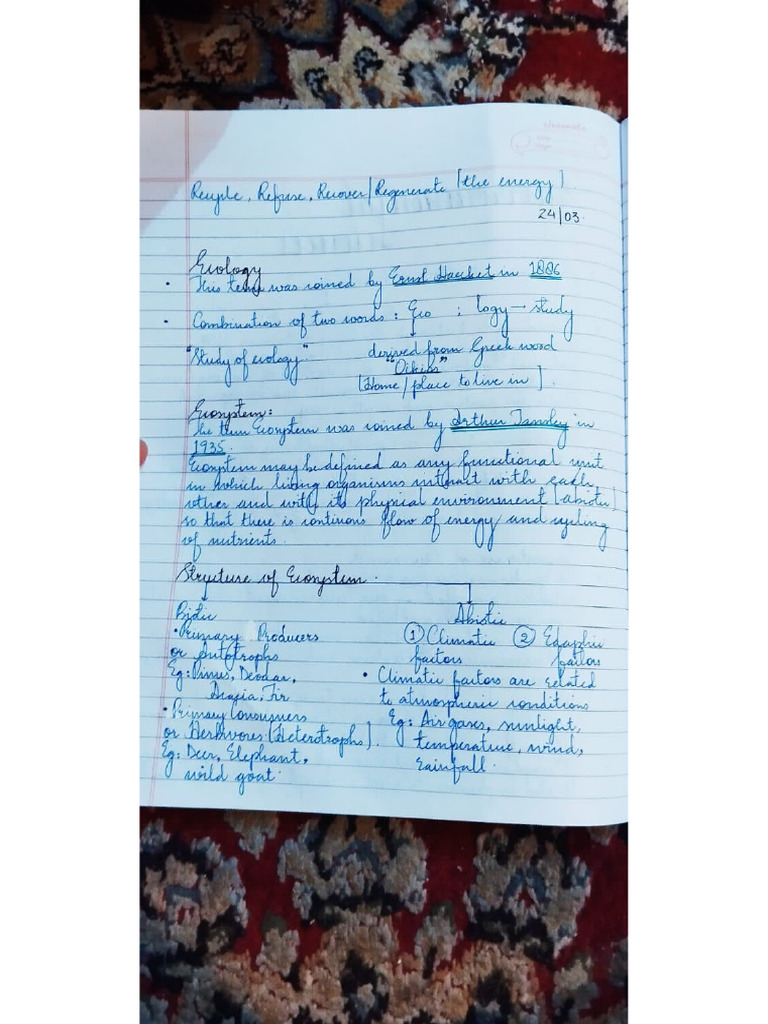 Recycle, Refuse, Recover/Regenerate [the energy].
24/03.
Ecology
• This term was coined by Ernst Haeckel in 1886
• Combination of two words : Eco ; logy → study
"Study of ecology" derived from Greek word
"Oikos"
[Home/place to live in].
Ecosystem:
The term Ecosystem was coined by Arthur Tansley in
1935.
Ecosystem may be defined as any functional unit
in which living organisms interact with each
other and with its physical environment [abiotic]
so that there is continous flow of energy and cycling
of nutrients.
Structure of Ecosystem.
Biotic
• Primary Producers
or Autotrophs
Eg: Pinus, Deodar,
Fir
• Primary Consumers
or Herbivores [Heterotrophs].
Eg: Deer, Elephant,
wild goat.
Abiotic
① Climatic ② Edaphic
factors factors
• Climatic factors are related
to atmospheric conditions
Eg: Air gases, sunlight,
temperature, wind,
rainfall.